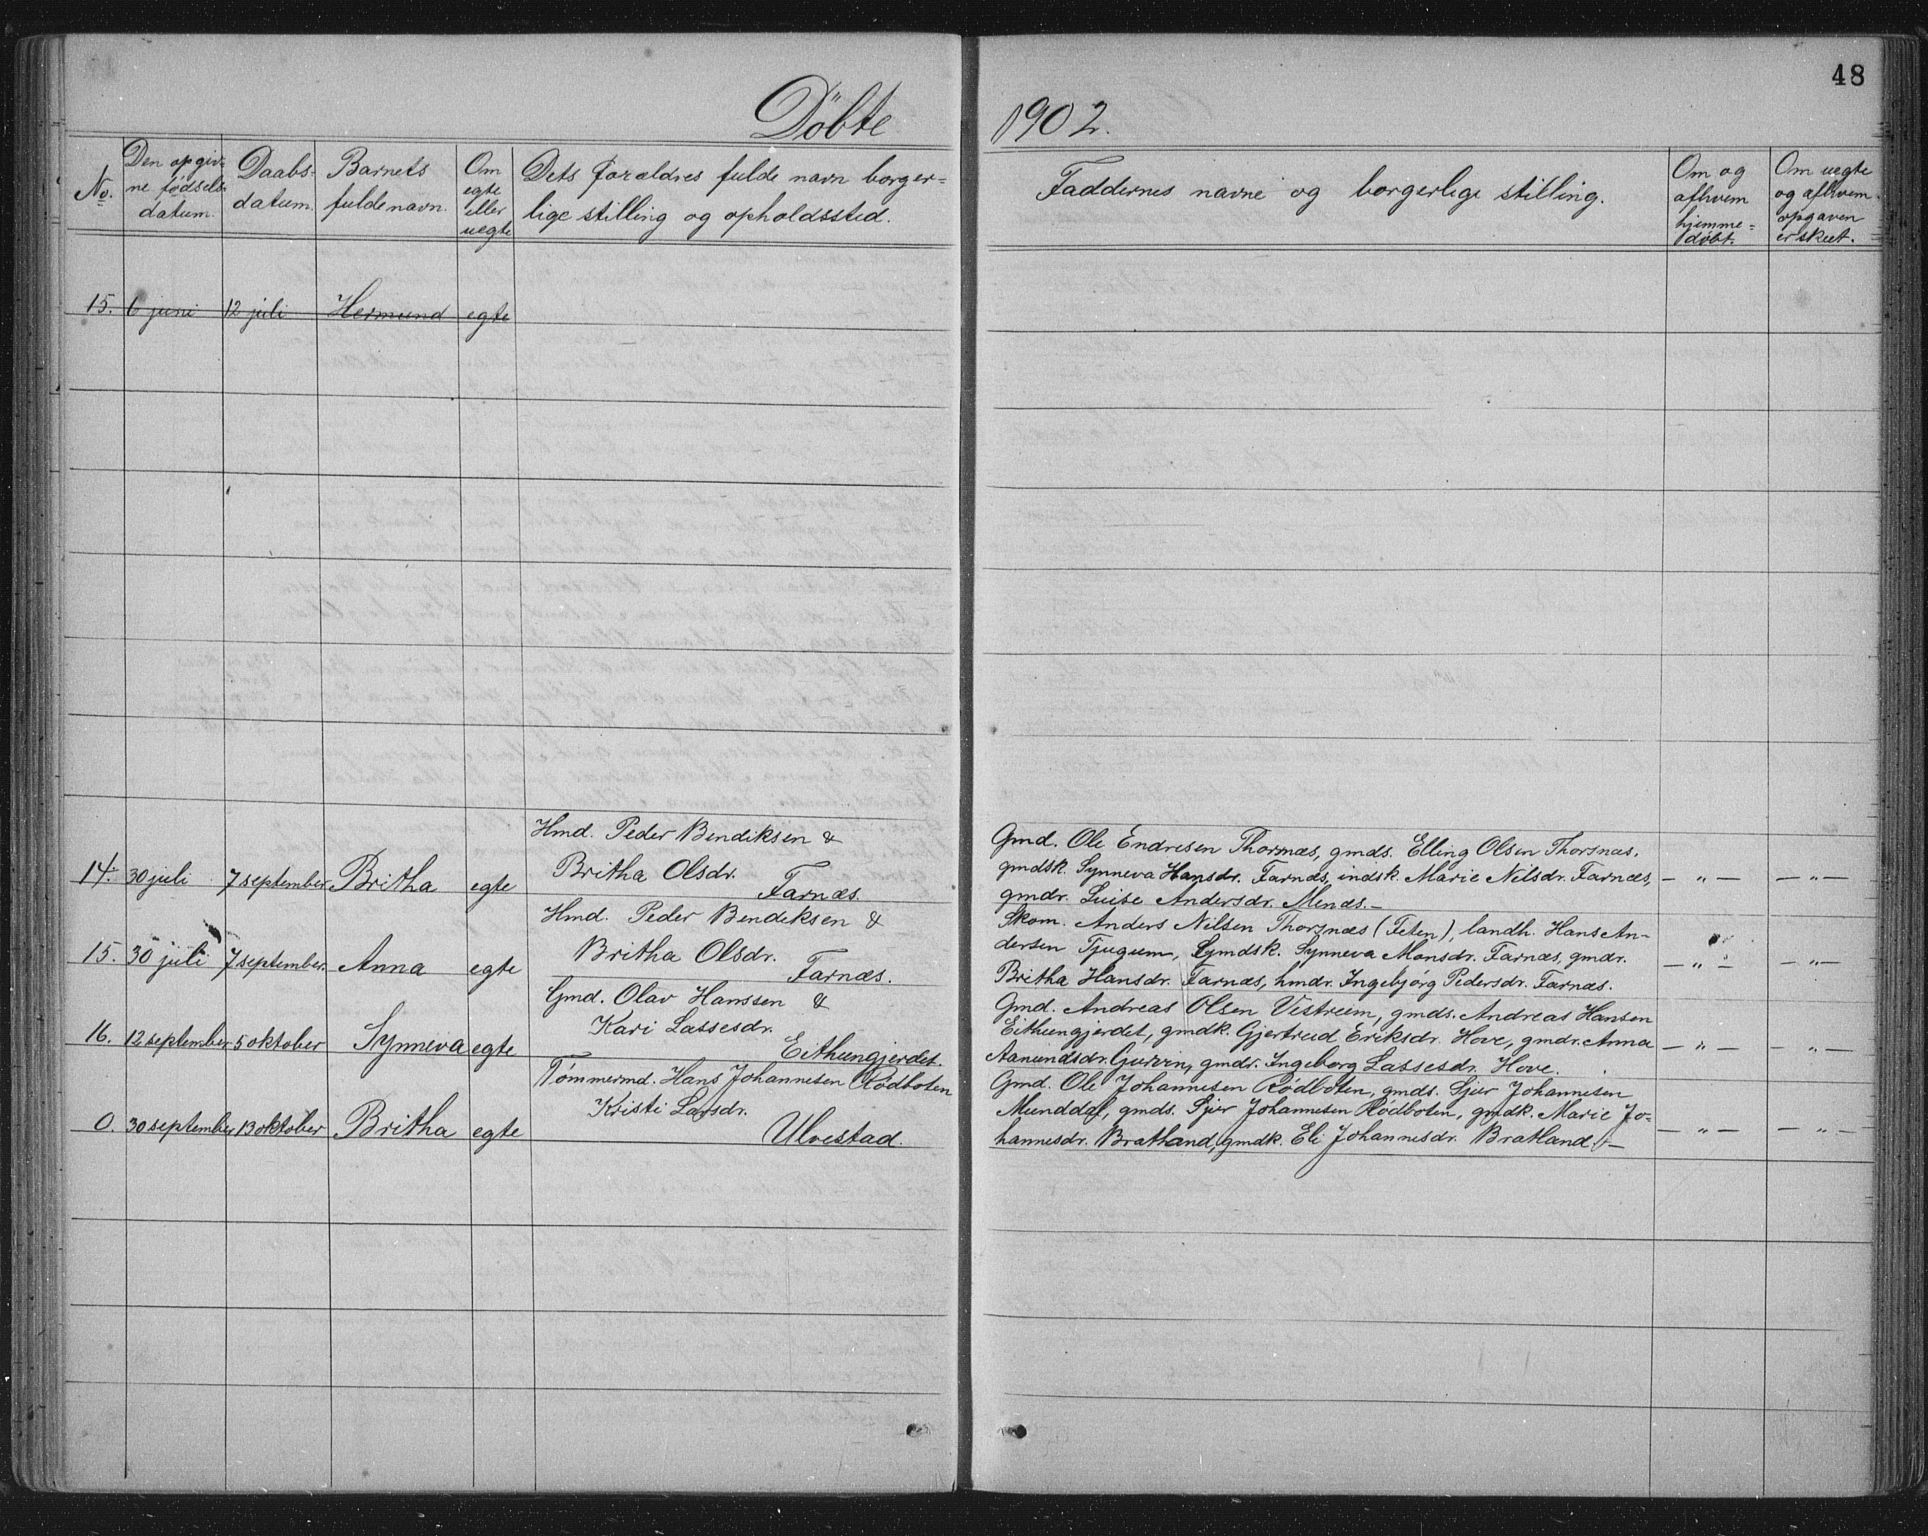 48
Döbte 1902.
No.
Den opgiv-
ne fødsels-
datum.
Daabs-
datum.
Barnets
fulde navn.
Om
egte
eller
uegte
Dets forældres fulde navn borger-
lige stilling og opholdssted.
Faddernes navne og borgerlige stilling.
Om og
af hvem
hjemme-
døbt.
Om uegte
og af hvem
opgaven
er skeet.
15. 6 juni 12 juli Hermund egte
Hmd. Peder Bendiksen &
14. 30 juli 7 september Britha egte Britha Olsdr.
Farnæs.
Gmd. Ole Endresen Thorsnæs, gmds. Elling Olsen Thorsnæs,
gmdsk. Synneva Hansdr. Farnæs, indsk. Marie Nilsdr. Farnæs, — „ — — „ —
gmdr. Luise Andersdr. Menæs.—
Hmd. Peder Bendiksen &
15. 30 juli 7 september Anna egte Britha Olsdr.
Farnæs.
Skom. Anders Nilsen Thorsnæs (Feten), landh. Hans An-
dersen Tjugum, gmdsk. Synneva Monsdr. Farnæs, gmdr. — „ — — „ —
Britha Hansdr. Farnæs, hmdr. Ingebjørg Pedersdr. Farnæs.
Gmd. Olav Hanssen &
16. 12 september 5 oktober Synneva egte Kari Lassesdr.
Eithungjerdet.
Gmd. Andreas Olsen Vestreim, gmds. Andreas Hansen
Eithungjerdet, gmdk. Gjertrud Eriksdr. Hove, gmdr. Anna — „ — — „ —
Aanundsdr. Gurvin, gmdr. Ingeborg Lassesdr. Hove.
Tømmermd. Hans Johannesen Rødboten
0. 30 september 13 oktober Britha egte Kristi Larsdr.
Ulvestad.
Gmd. Ole Johannesen Rødboten, gmds. Sjur Johannesen
Munddal, gmds. Sjur Johannesen Rødboten, gmdk. Marie Jo-
hannesdr. Bratland, gmdk. Eli Johannesdr. Bratland.— — „ — — „ —